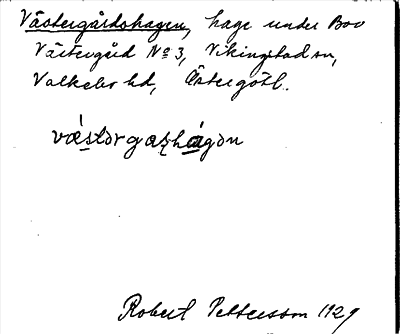 Västergårdshagen, hage under Boo
Västergård No 3, Vikingstad sn,
Valkebo hd, Östergötl.
Robert Pettersson 1929